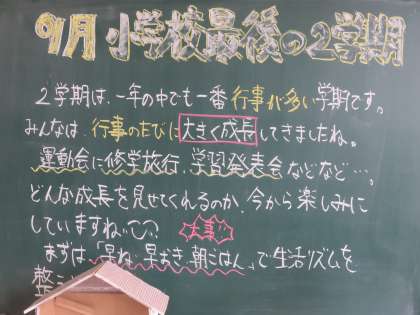 9月 小学校最後の2学期
2学期は、一年の中でも一番行事が多い学期です。
みんなは、行事のたびに大きく成長してきましたね。
運動会に修学旅行、学習発表会などなど…。
どんな成長を見せてくれるのか、今から楽しみに
していますね
大事!!
まずは「早ね・早おき・朝ごはん」で生活リズムを
整